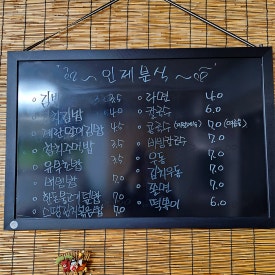 ~ 인제분식 ~
김밥 3.5
김밥 4.0
계란말이김밥 4.5
참치주먹밥 3.5
유부초밥
비빔밥 7.0
7.0
스팸김치볶음밥 7.0
라면 4.0
칼국수 6.0
콩국수 7.0
비빔칼국수 7.0
우동
김치우동 7.0
쫄면 7.0
떡볶이 6.0